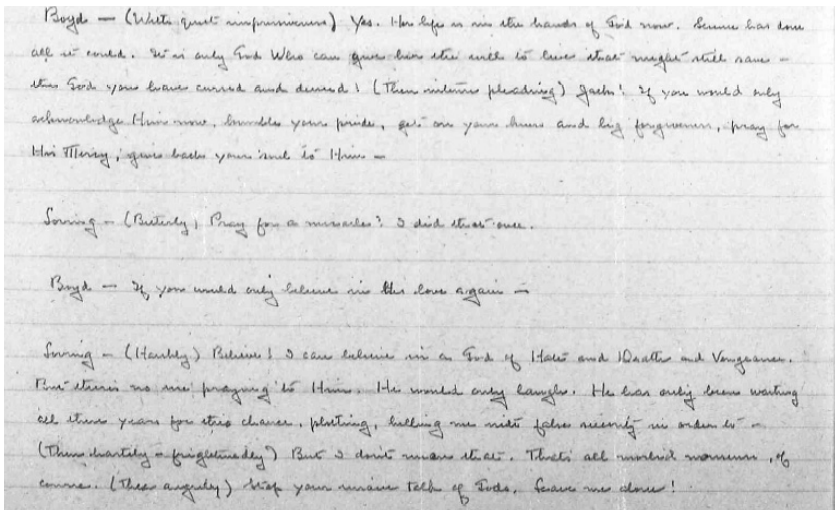 Boyd — (With quiet impressiveness) Yes. Her life is in the hands of God now. Science has done
all it could. It is only God Who can give her the will to live that might still save —
the God you have cursed and denied! (Then intense pleading) Jack! If you would only
acknowledge Him now, humble your pride, get on your knees and beg forgiveness, pray for
His Mercy, give back your soul to Him —
Loving — (Bitterly) Pray for a miracle? I did that once.
Boyd — If you would only believe in His love again —
Loving — (Harshly) Believe! I can believe in a God of Hate and Death and Vengeance.
But there's no use praying to Him. He would only laugh. He has only been waiting
all these years for this chance, plotting, lulling me into false security in order to —
(Then hastily — frightenedly) But I don't mean that. That's all morbid nonsense, of
course. (Then angrily) Stop your insane talk of Gods. Leave me alone!